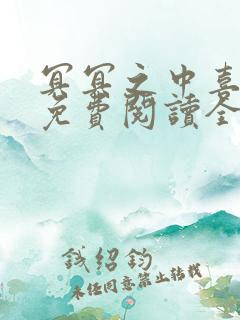 冥冥之中喜
免費閱讀全
錢紹鈞
未經同意禁止轉載